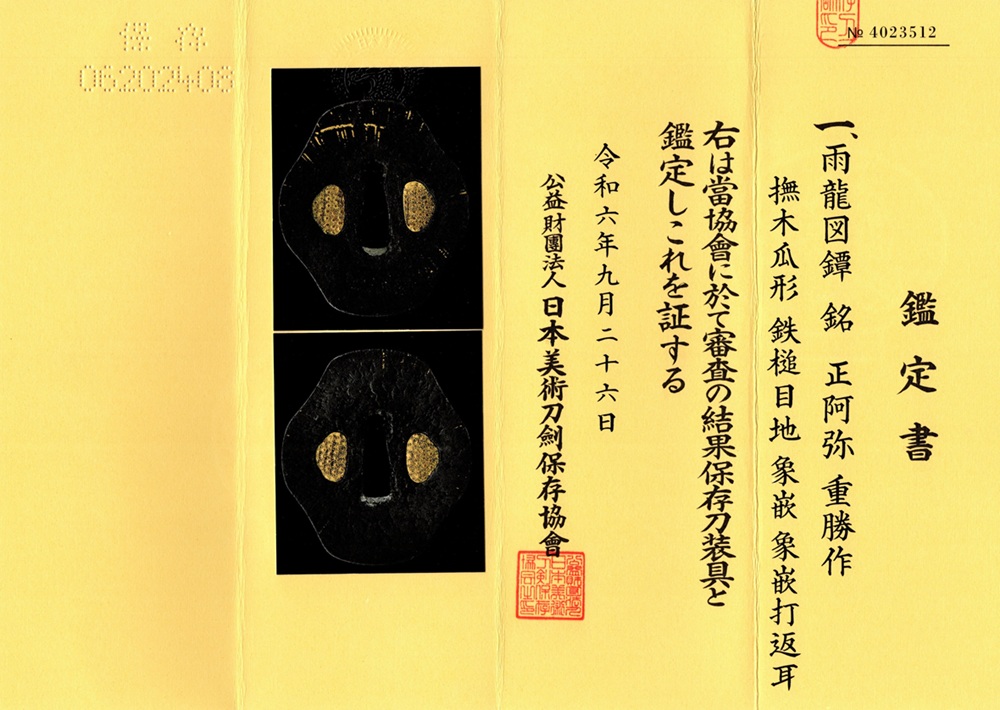 № 4023512
鑑定書
一、雨龍図鐔 銘 正阿弥重勝作
撫木瓜形 鉄槌目地 象嵌 象嵌打返耳
右は當協會に於て審査の結果保存刀装具と
鑑定しこれを証する
令和六年九月二十六日
公益財團法人 日本美術刀劍保存協會
保存
06202408